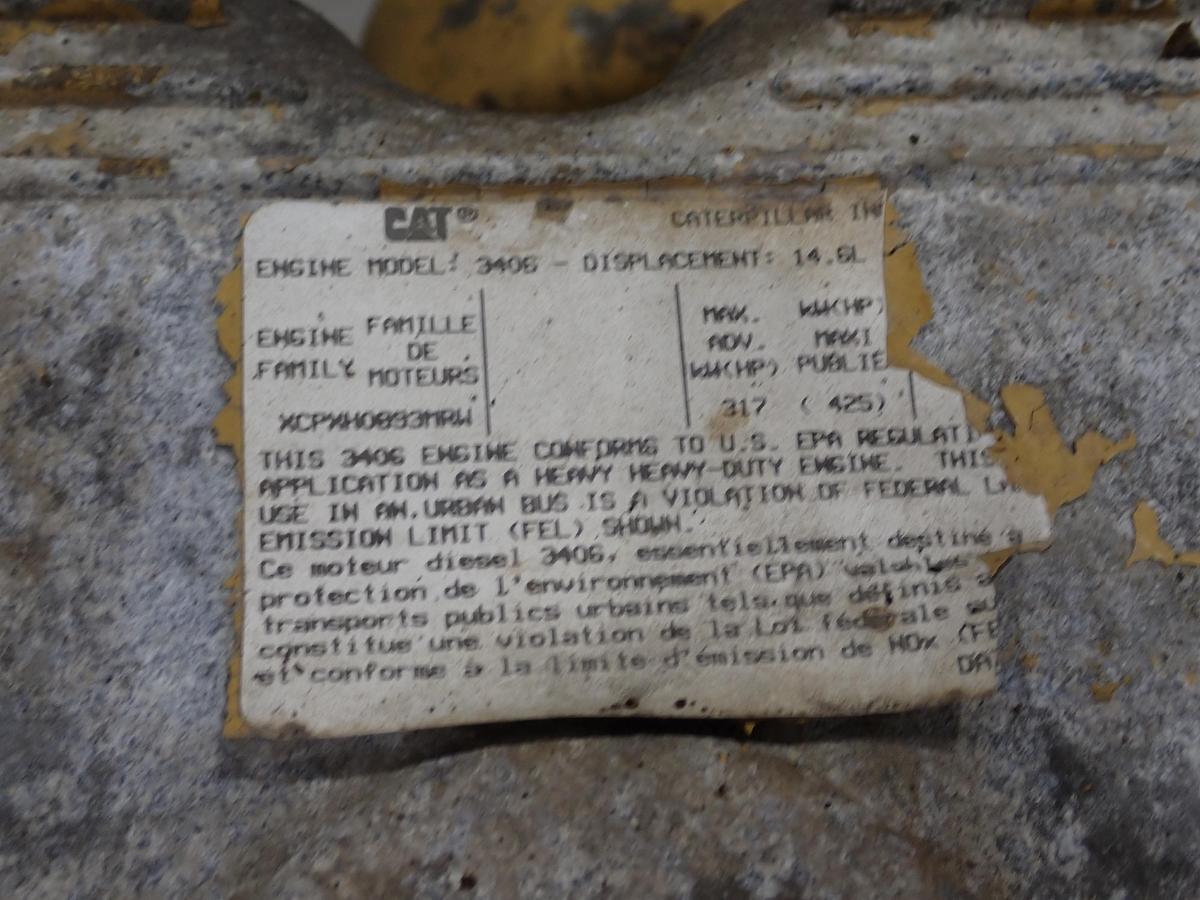 CAT® CATERPILLAR IN
ENGINE MODEL: 3406 - DISPLACEMENT: 14.6L
ENGINE FAMILY
FAMILLE DE MOTEURS
XCPXH0893MRW
MAX. ADV. kW(HP)
kW(HP) MAXI PUBLIÉ
317 ( 425)
THIS 3406 ENGINE CONFORMS TO U.S. EPA REGULATI
APPLICATION AS A HEAVY HEAVY-DUTY ENGINE. THIS
USE IN AN URBAN BUS IS A VIOLATION OF FEDERAL LA
EMISSION LIMIT (FEL) SHOWN.
Ce moteur diesel 3406, essentiellement destiné à
protection de l'environnement (EPA) valables
transports publics urbains tels que définis a
constitue une violation de la Loi fédérale su
et conforme à la limite d'émission de NOx (FE
DA